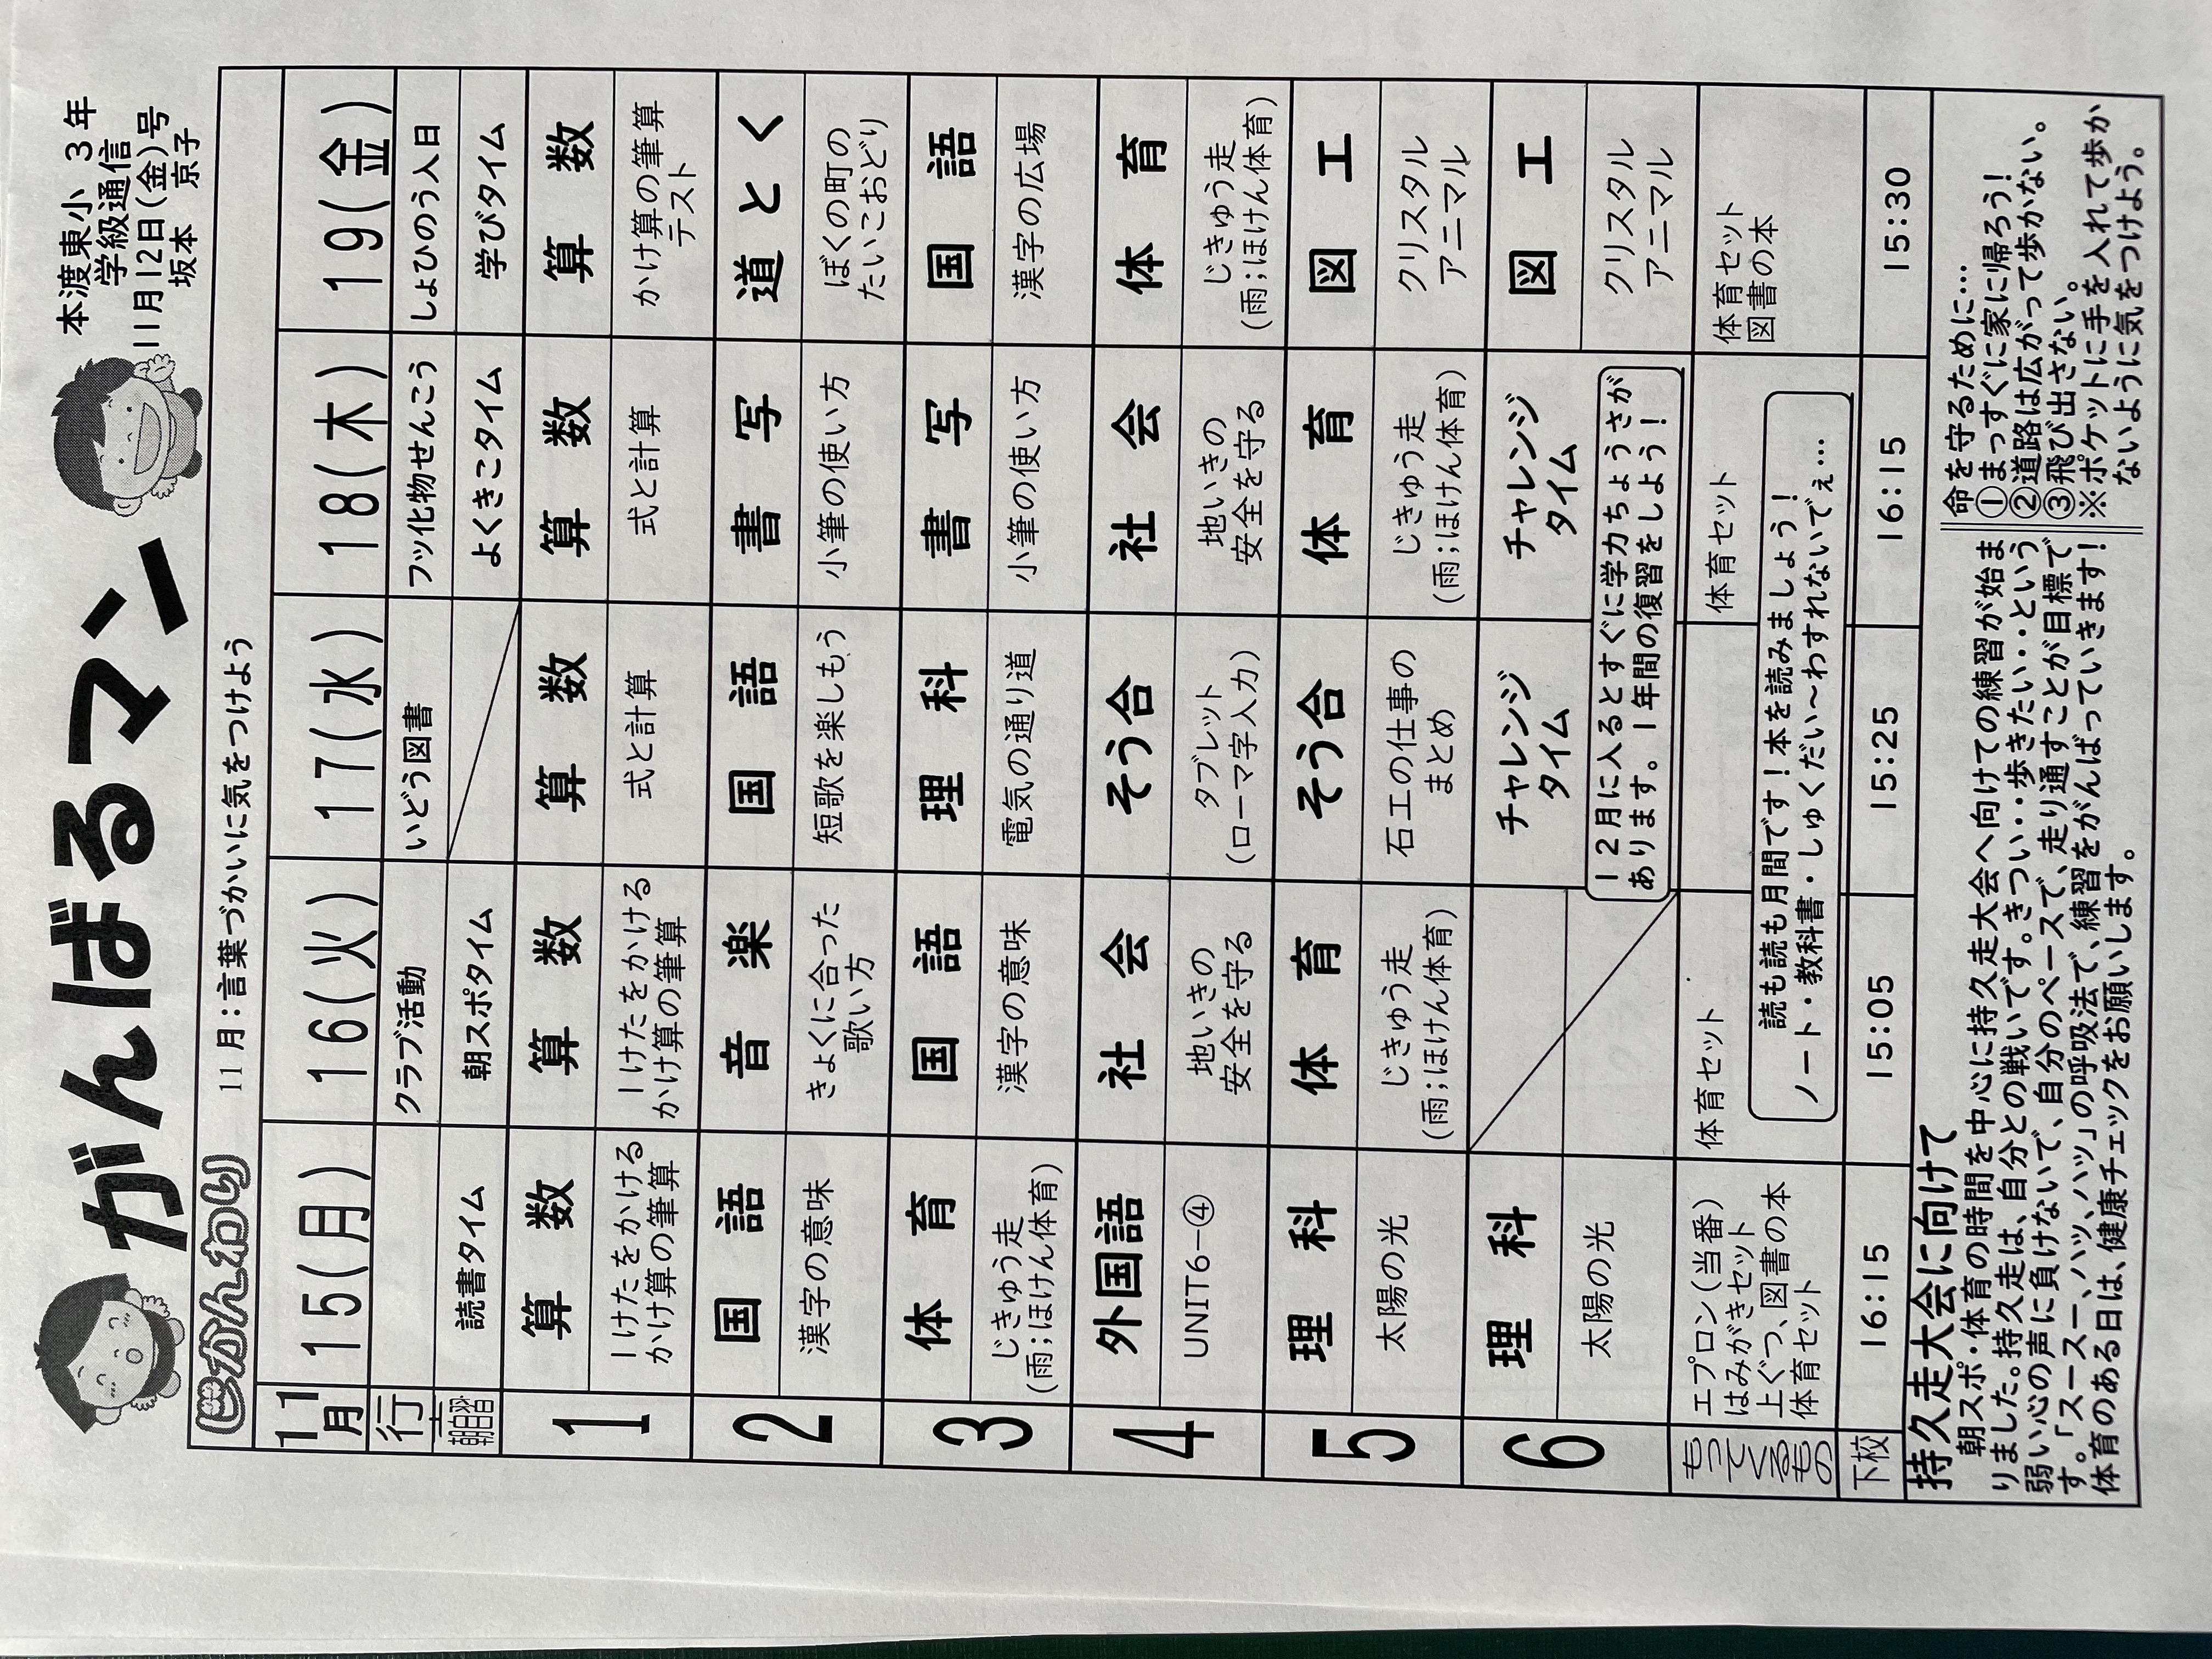 がんばるマン
本渡東小 3年
学級通信
11月12日(金)号
坂本 京子
じかんわり 11月:言葉づかいに気をつけよう
11月 15(月) 16(火) 17(水) 18(木) 19(金)
行 クラブ活動 いどう図書 フッ化物せんこう しょひのう入日
朝自習 読書タイム 朝スポタイム よくきこタイム 学びタイム
1 算数 算数 算数 算数 算数
1けたをかける 1けたをかける 式と計算 式と計算 かけ算の筆算
かけ算の筆算 かけ算の筆算 テスト
2 国語 音楽 国語 書写 道とく
漢字の意味 きょくに合った 短歌を楽しもう 小筆の使い方 ぼくの町の
歌い方 たいこおどり
3 体育 国語 理科 書写 国語
じきゅう走 漢字の意味 電気の通り道 小筆の使い方 漢字の広場
(雨;ほけん体育)
4 外国語 社会 そう合 社会 体育
UNIT6-④ 地いきの タブレット 地いきの じきゅう走
安全を守る (ローマ字入力) 安全を守る (雨;ほけん体育)
5 理科 体育 そう合 体育 図工
太陽の光 じきゅう走 石工の仕事の じきゅう走 クリスタル
(雨;ほけん体育) まとめ (雨;ほけん体育) アニマル
6 理科 チャレンジ チャレンジ 図工
タイム タイム
太陽の光 クリスタル
アニマル
12月に入るとすぐに学力ちょうさが
あります。1年間の復習をしよう!
もってくるもの エプロン(当番) 体育セット 体育セット 体育セット
はみがきセット 図書の本
上ぐつ、図書の本
体育セット
読も読も月間です!本を読みましょう!
ノート・教科書・しゅくだい~わすれないでぇ…
下校 16:15 15:05 15:25 16:15 15:30
持久走大会に向けて
朝スポ・体育の時間を中心に持久走大会へ向けての練習が始ま
りました。持久走は、自分との戦いです。きつい・・歩きたい・・という
弱い心の声に負けないで、自分のペースで、走り通すことが目標で
す。「スースー、ハッ、ハッ」の呼吸法で、練習をがんばっていきます!
体育のある日は、健康チェックをお願いします。
命を守るために…
①まっすぐに家に帰ろう!
②道路は広がって歩かない。
③飛び出さない。
※ポケットに手を入れて歩か
ないように気をつけよう。